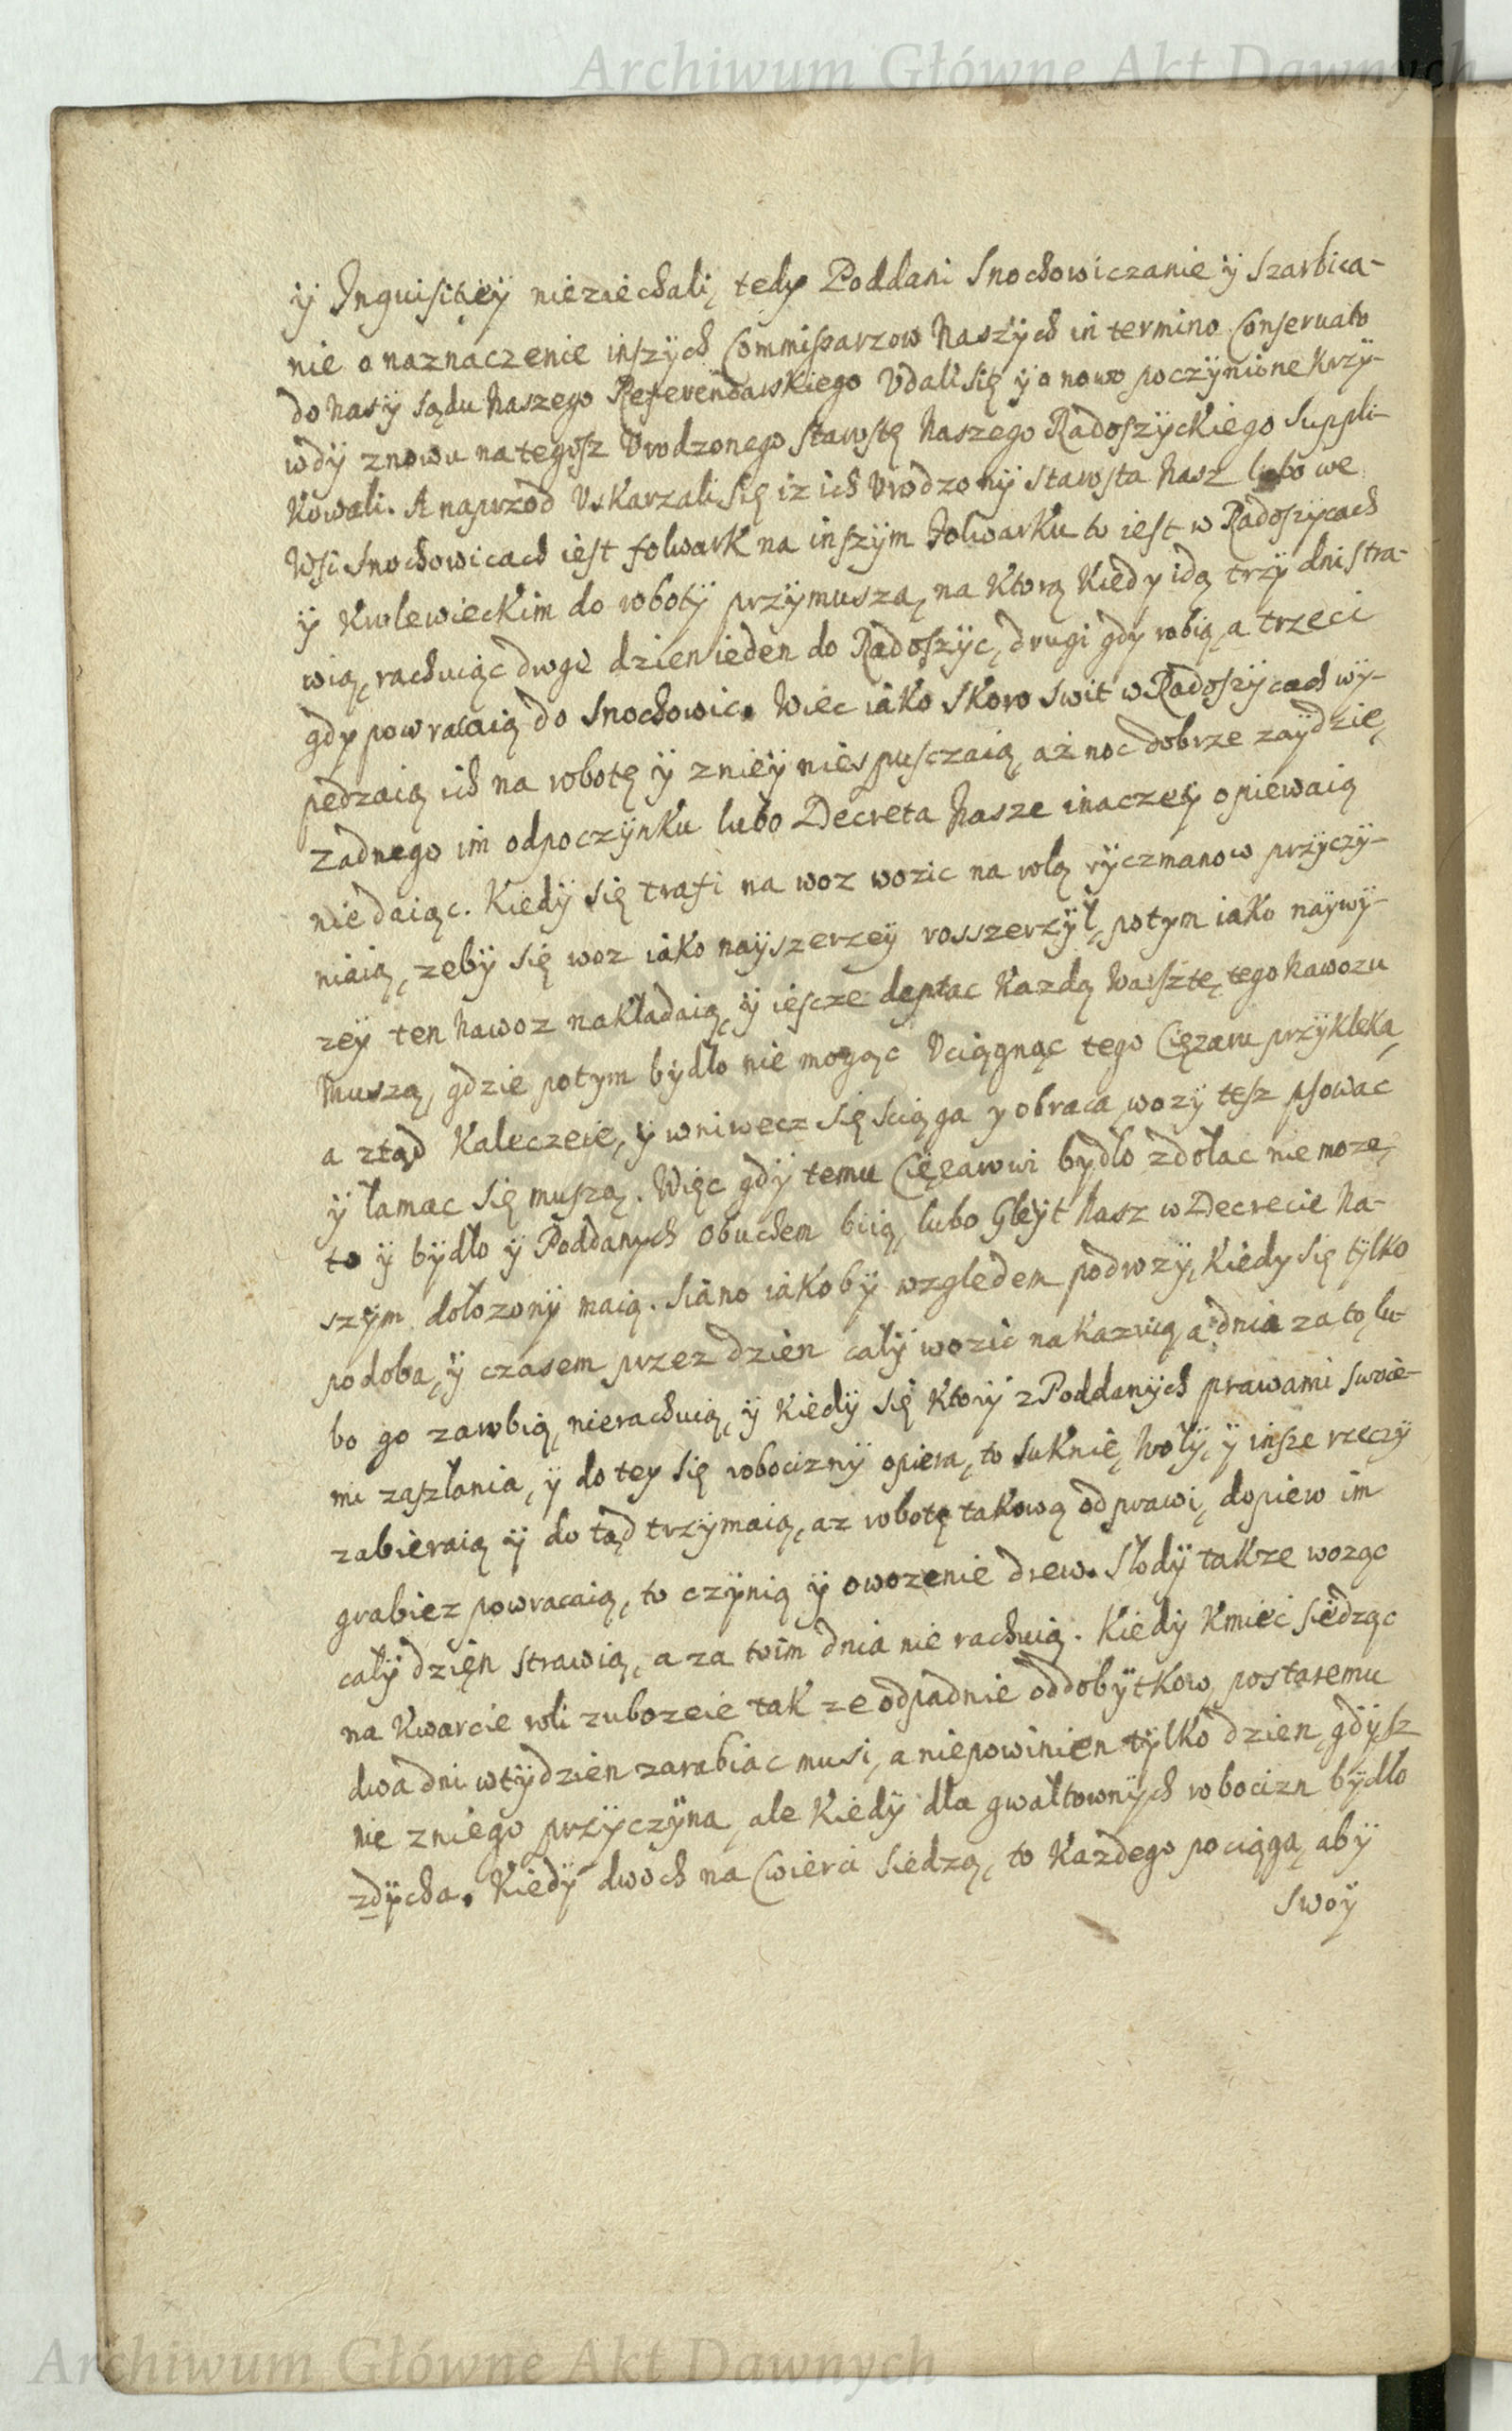 Archiwum Główne Akt Dawnych
ÿ Inquisitÿeÿ nieziechali, tedy Poddani Snochowiczanie ÿ Szarbica-
nie o naznaczenie inszÿch Commissarzow Naszÿch in termino Conseruato
do Nas ÿ Sądu Naszego Referendarskiego Vdali się ÿ o nowo poczÿnione krzÿ-
wdÿ znowu na tegosz Vrodzonego Starostę Naszego Radoszÿckiego Suppli-
kowali. A naprzod Vskarzali się iz ich Vrodzonÿ Starosta Nasz lubo we
Wsi Snochowicach iest folwark na inszÿm folwarku to iest w Radoszÿcach
ÿ Krolewieckim do robotÿ przÿmusza, na ktorą kiedy idą trzÿ dni stra-
wią, rachuiąc drogi dzien ieden do Radoszÿc, drugi gdy robią, a trzeci
gdy powracaią do Snochowic. Wiec iako skoro swit w Radoszÿcach wÿ-
pedzaią ich na robotę ÿ znieÿ niespusczaią, aż noc dobrze zaÿdzie,
zadnego im odpoczÿnku lubo Decreta Nasze inaczeÿ opiewaią
nie daiąc. Kiedÿ się trafi na woz wozic na rolą ryczmanow przÿczÿ-
niaią, zebÿ się woz iako naÿszerzeÿ rosszerzÿł, potym iako naÿwÿ-
zeÿ ten Nawoz nakładaią, ÿ iescze deptac kazdą Warsztę tego Nawozu
Muszą, gdzie potym bÿdło nie mogąc Vciągnąc tego Cięzaru przÿkleka,
a ztąd kaleczeie, ÿ wniwecz się sciąga y obraca, wozÿ tesz psowac
ÿ łamac się muszą. Więc gdÿ temu Cięzarowi bÿdło zdołac nie moze,
to ÿ bÿdło ÿ Poddanych obuchem biią, lubo Gleÿt Nasz w Decrecie Na-
szÿm dołozonÿ maią. Siano iakobÿ wzgledem podrozÿ, kiedy się tÿlko
podoba, ÿ czasem przez dzien całÿ wozic nakazuią, a dnia za to, lu-
bo go zarobią, nierachuią, ÿ kiedÿ się ktorÿ z Poddanÿch prawami swoie-
mi zaszłania, ÿ do tey się robociznÿ opiera, to suknie, Wołÿ, ÿ insze rzeczÿ
zabieraią ÿ do tąd trzÿmaią, az robotę takową odprawi, dopiero im
grabiez powracaią, to czÿnią ÿ o wozenie drew. Słodÿ takze wozqc
całÿ dzięn strawią, a za to im dnia nie rachuią. Kiedÿ kmieć siedząc
na kwarcie roli zubozeie tak ze odpadnie od dobÿtkow, postaremu
dwa dni w tÿdzien zarabiac musi, a niepowinien tÿlko dzien, gdÿsz
nie zniego przÿczÿna, ale kiedÿ dla gwałtownÿch robocizn bÿdło
zdÿcha. Kiedÿ dwoch na Cwierci siedzą, to kazdego pociąga, abÿ
swoÿ
Archiwum Główne Akt Dawnych